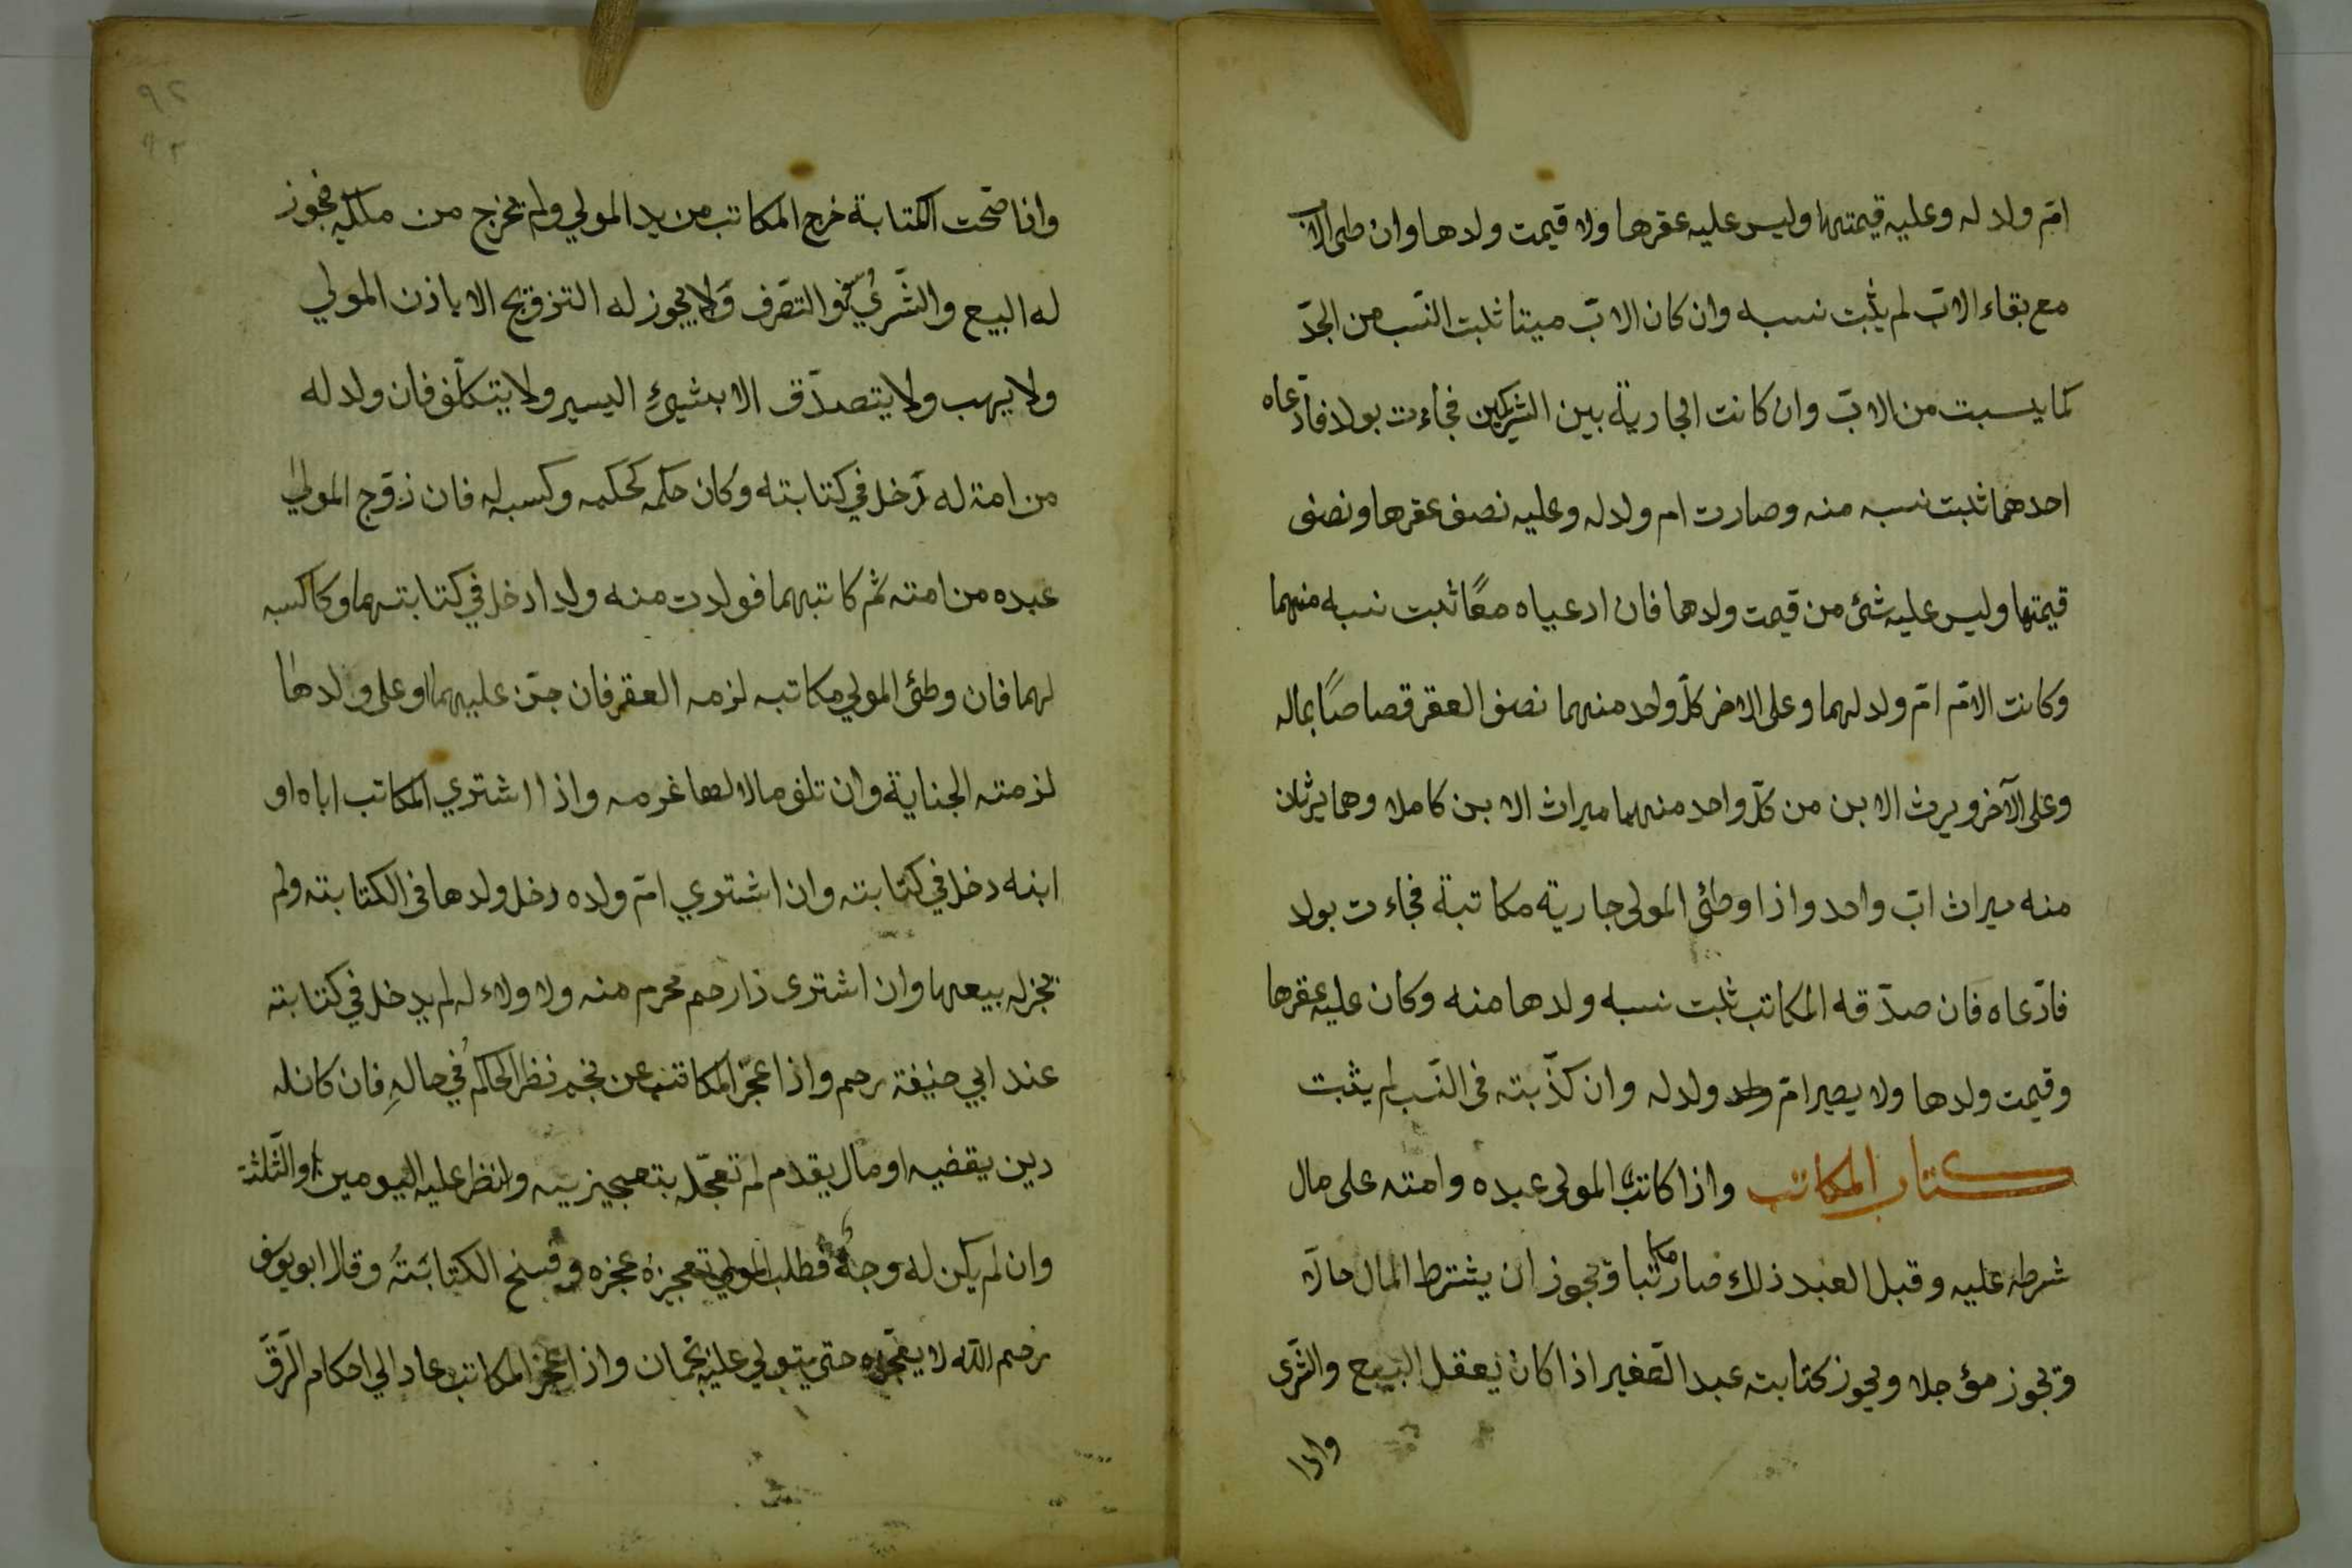 امّ ولد له وعليه قيمتها وليس عليه عقرها ولا قيمت ولدها وان طى الاب
مع بقاء الابّ لم يثبت نسبه وان كان الابّ ميتا ثبت النّسب من الجدّ
كما يسبت من الابّ وان كانت الجارية بين الشريكين فجاءت بولد فادّعاه
احدهما ثبت نسبه منه وصارت ام ولد له وعليه نصف عقرها ونصف
قيمتها وليس عليه شئ من قيمت ولدها فان ادعياه معًا ثبت نسبه منهما
وكانت الامّ امّ ولد لهما وعلى الاخر كلّ واحد منهما نصف العقر قصاصًا بماله
وعلى الآخر ويرث الابن من كلّ واحد منهما ميراث الابن كاملا وهما يرثان
منه ميراث ابّ واحد واذا وطئ المولى جارية مكاتبة فجاءت بولد
فادّعاه فان صدّقه المكاتب ثبت نسبه ولدها منه وكان عليه عقرها
وقيمت ولدها ولا يصير امّ ولد ولد له وان كذّبته فى النّسب لم يثبت
كتاب المكاتب واذا كاتبّ المولى عبده وامته على مال
شرطه عليه وقبل العبد ذلك صار مكاتبا ويجوز ان يشترط المال حالّا
ويجوز مؤجلا ويجوز كتابت عبد الصّغير اذا كان يعقل البيع والشّرى
واذا
٩٢
٩٣
واذا صحّت الكتابة خرج المكاتب من يد المولي ولم يخرج من ملكه فيجوز
له البيع والشّري والتصّرف ولا يجوز له التزوّيج الا باذن المولي
ولا يهب ولا يتصدّق الا بشيئ اليسير ولا يتكلّف فان ولد له
من امة له دخل في كتابته وكان حكمه كحكمه وكسبه له فان زوّج المولي
عبده من امته ثم كاتبهما فولدت منه ولدا دخل في كتابتهما وكا كسبه
لهما فان وطئ المولي مكاتبه لزمه العقر فان جنّ عليهما او على ولدها
لزمته الجناية وان تلف مالا لها غرمه واذا اشتري المكاتب اباه او
ابنه دخل في كتابته وان اشتوي امّ ولده دخل ولدها فى الكتابته ولم
يجز له بيعها وان اشترى ذا رحم محرم منه ولا ولاء له لم يدخل في كتابته
عند ابي حنيفة رحم واذا عجّز المكاتب عن نجم نظر الحاكم في حاله فان كان له
دين يقضيه او مال يقدم لم تعجّل بتعجيزيه وانظر عليه اليومين او الثّلثة
وان لم يكن له وجهٌ فطلب المولي تعجيزه عجزه وفسخ الكتابتهُ وقال ابو يوسف
رحم اللّه لا يعجّزه حتى يتولي عليه نجمان واذا عجز المكاتب عاد الي احكام الرّقّ